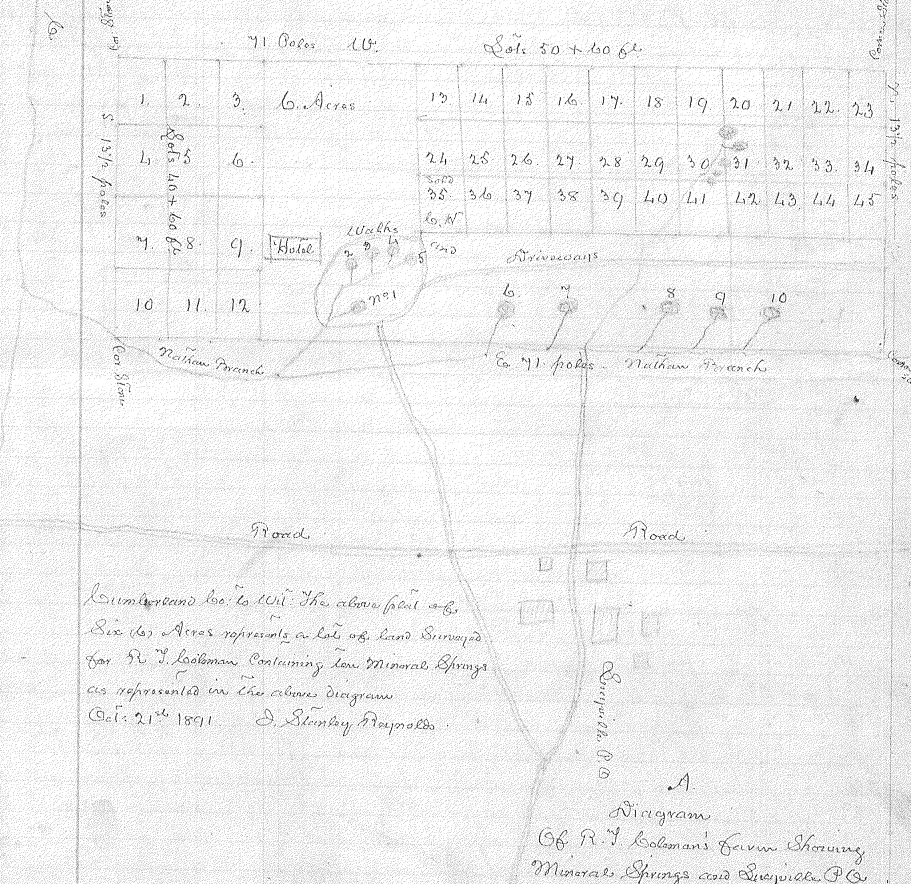 71 Poles W. Lots 50 + 60 ft
1. 2. 3. 6. Acres 13 14 15 16. 17. 18 19 20 21 22. 23
S 13½ poles
Lots 40 + 60 ft
N. 13½ poles
4. 5 6. 24 25. 26. 27. 28 29 30 31 32 33. 34
sold
35. 36 37 38 39 40 41 42 43 44 45
Walks
7. 8. 9. Hotel 2 3 4 5 and Driveways
10 11. 12 No. 1 6. 7 8 9 10
Nathan Branch E 71. poles. Nathan Branch
Cor Stone
Road Road
Cumberland Co. to Wit: The above plat of
Six (6) Acres represents a lot of land Surveyed
for R T. Coleman Containing ten Mineral Springs
as represented in the above diagram
Oct: 21st 1891. J. Stanley Reynolds.
P O
A
Diagram
Of R. T. Coleman's farm Showing
Mineral Springs and P O